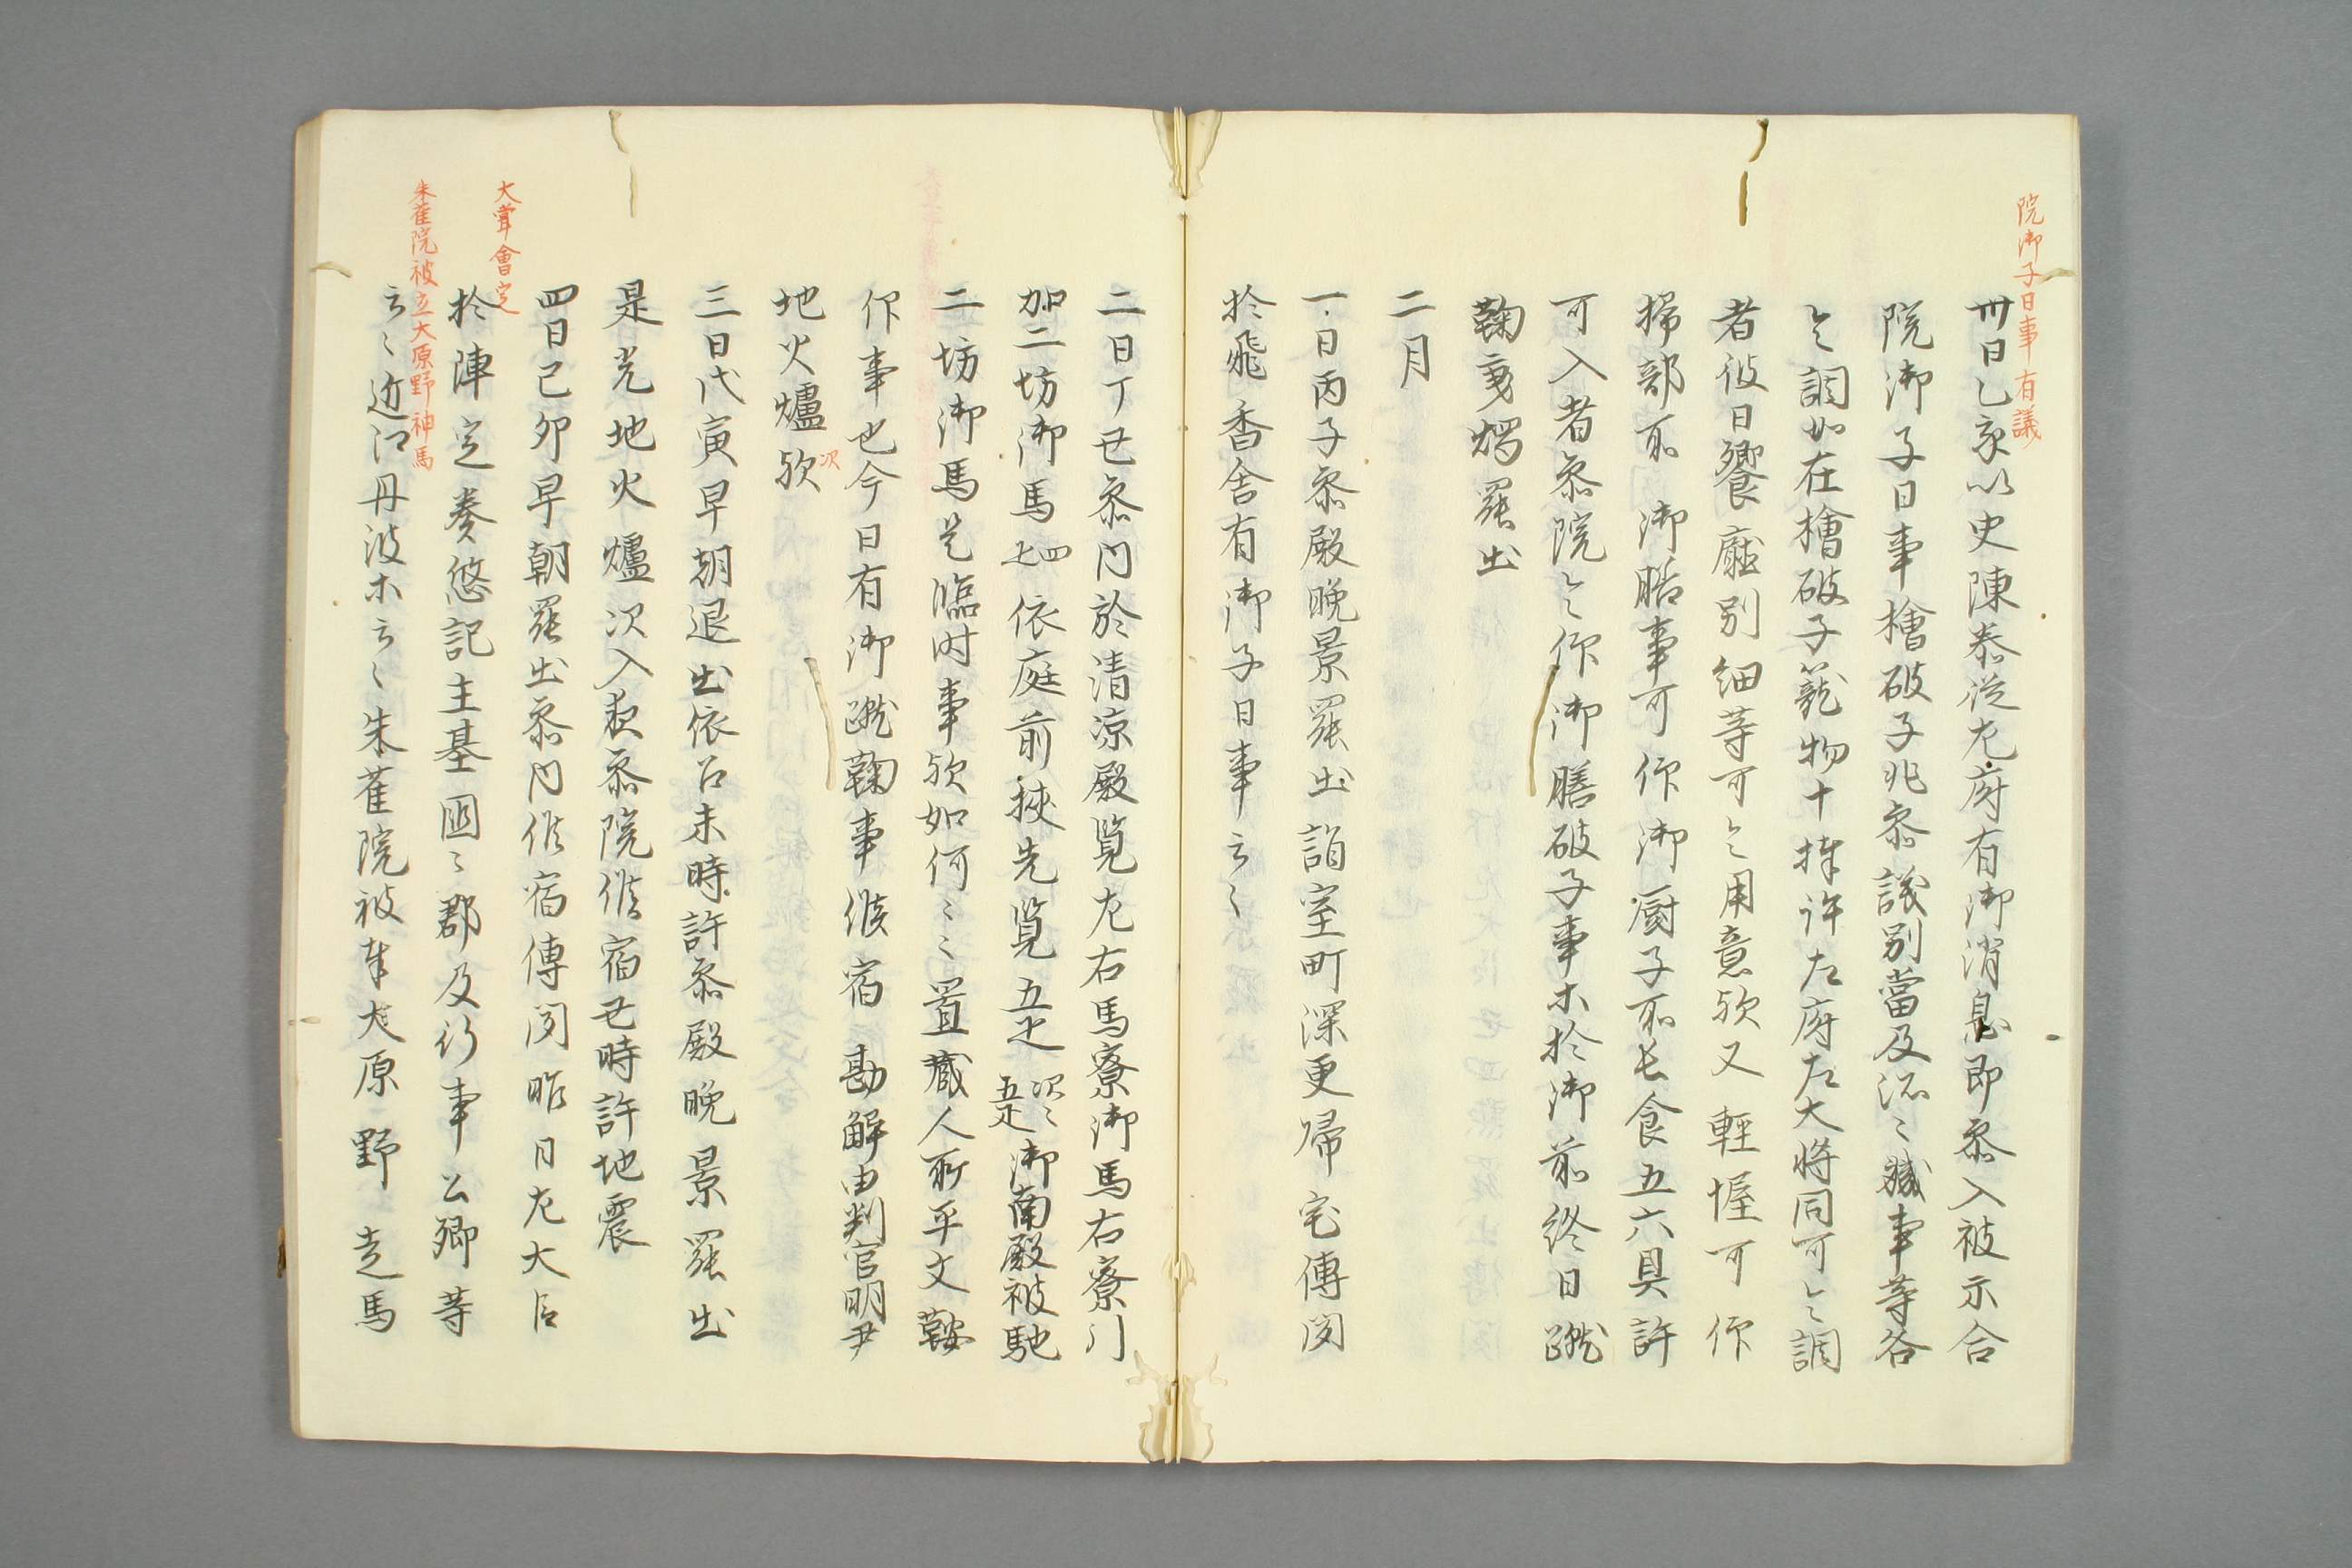 院御子日事有議
卅日乙亥以史陳泰従左府有御消息即参入被示合
院御子日事檜破子非参議別當及所々軄事等各
令調如在檜破子籠物十捧許左府左大将同可令調
者彼日饗應別納等可令用意欤又輕幄可仰
掃部所 御膳事可仰御厨子所長食五六具許
可入者参院令仰御膳破子事木於御前終日蹴
鞠乗燭罷出
二月
一日丙子参殿晩景罷出詣室町深更帰宅傳聞
於飛香舎有御子日事云々
二日丁丑参内於清凉殿覧左右馬寮御馬右寮門
加二坊御馬四疋依庭前挾先覧五疋次々五疋御南殿被馳
二坊御馬是臨時事欤如何々々置蔵人所平文鞍
仰事也今日有御蹴鞠事候宿 勘解由判官明尹
地火爐欤次
三日戊寅早朝退出依召未時許参殿晩景罷出
是光地火爐次入夜参院候宿丑時許地震
大甞會定
四日己卯早朝罷出参内候宿傳聞昨日左大臣
於陣定奏悠記主基國々郡及行事公卿等
朱雀院被立大原野神馬
云々近江丹波木云々朱雀院被奉大原野 走馬